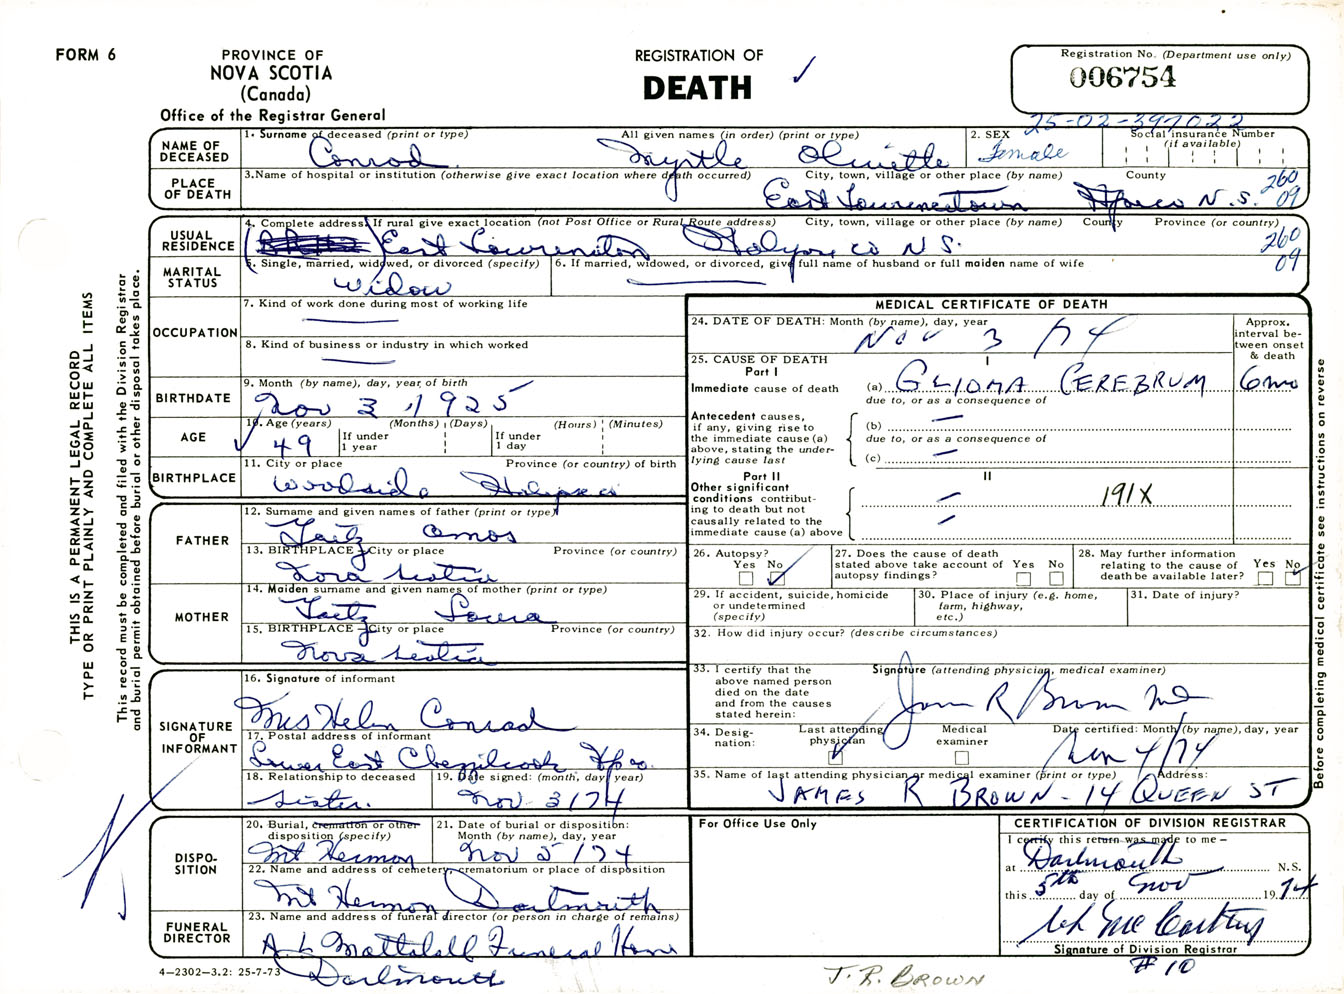 FORM 6
PROVINCE OF
NOVA SCOTIA
(Canada)
Office of the Registrar General
REGISTRATION OF
DEATH
Registration No. (Department use only)
006754
25-02-397022
NAME OF DECEASED
1. Surname of deceased (print or type) All given names (in order) (print or type) 2. SEX Social insurance Number (if available)
Conrad Myrtle Female
PLACE OF DEATH
3. Name of hospital or institution (otherwise give exact location where death occurred) City, town, village or other place (by name) County
East Lawrencetown Hfx co N.S. 260 09
USUAL RESIDENCE
4. Complete address. If rural give exact location (not Post Office or Rural Route address) City, town, village or other place (by name) County Province (or country)
East Halifax co N S. 260 09
MARITAL STATUS
5. Single, married, widowed, or divorced (specify) 6. If married, widowed, or divorced, give full name of husband or full maiden name of wife
widow
OCCUPATION
7. Kind of work done during most of working life
8. Kind of business or industry in which worked
BIRTHDATE
9. Month (by name), day, year of birth
Nov 3, 1925
AGE
10. Age (years) (Months) (Days) (Hours) (Minutes)
49 If under 1 year If under 1 day
BIRTHPLACE
11. City or place Province (or country) of birth
Woodside Halifax co
FATHER
12. Surname and given names of father (print or type)
Amos
13. BIRTHPLACE - City or place Province (or country)
Nova Scotia
MOTHER
14. Maiden surname and given names of mother (print or type)
15. BIRTHPLACE - City or place Province (or country)
Nova Scotia
SIGNATURE OF INFORMANT
16. Signature of informant
Mrs Helen Conrad
17. Postal address of informant
Lower East Chezzetcook Hfx co.
18. Relationship to deceased 19. Date signed: (month, day, year)
sister. Nov 3/74
DISPOSITION
20. Burial, cremation or other disposition (specify) 21. Date of burial or disposition: Month (by name), day, year
Mt Hermon Nov 5/74
22. Name and address of cemetery, crematorium or place of disposition
Mt Hermon Dartmouth
FUNERAL DIRECTOR
23. Name and address of funeral director (or person in charge of remains)
A. L. Mattatall Funeral Home
Dartmouth
4-2302-3.2: 25-7-73
MEDICAL CERTIFICATE OF DEATH
24. DATE OF DEATH: Month (by name), day, year
Nov 3 /74
Approx. interval between onset & death
25. CAUSE OF DEATH
Part I I
Immediate cause of death (a) GLIOMA CEREBRUM 6 mo
due to, or as a consequence of
Antecedent causes, if any, giving rise to the immediate cause (a) above, stating the underlying cause last
(b) —
due to, or as a consequence of
(c) —
Part II II
Other significant conditions contributing to death but not causally related to the immediate cause (a) above
191X
26. Autopsy? Yes No
27. Does the cause of death stated above take account of autopsy findings? Yes No
28. May further information relating to the cause of death be available later? Yes No
29. If accident, suicide, homicide or undetermined (specify)
30. Place of injury (e.g. home, farm, highway, etc.)
31. Date of injury?
32. How did injury occur? (describe circumstances)
33. I certify that the above named person died on the date and from the causes stated herein:
Signature (attending physician, medical examiner)
James R Brown MD
34. Designation: Last attending physician Medical examiner Date certified: Month (by name), day, year
Nov 4/74
35. Name of last attending physician or medical examiner (print or type) Address:
JAMES R BROWN - 14 QUEEN ST
For Office Use Only
CERTIFICATION OF DIVISION REGISTRAR
I certify this return was made to me —
at Dartmouth N.S.
this 5th day of Nov 1974
McCarthy
Signature of Division Registrar
# 10
J. R. BROWN
THIS IS A PERMANENT LEGAL RECORD
TYPE OR PRINT PLAINLY AND COMPLETE ALL ITEMS
This record must be completed and filed with the Division Registrar
and burial permit obtained before burial or other disposal takes place.
Before completing medical certificate see instructions on reverse